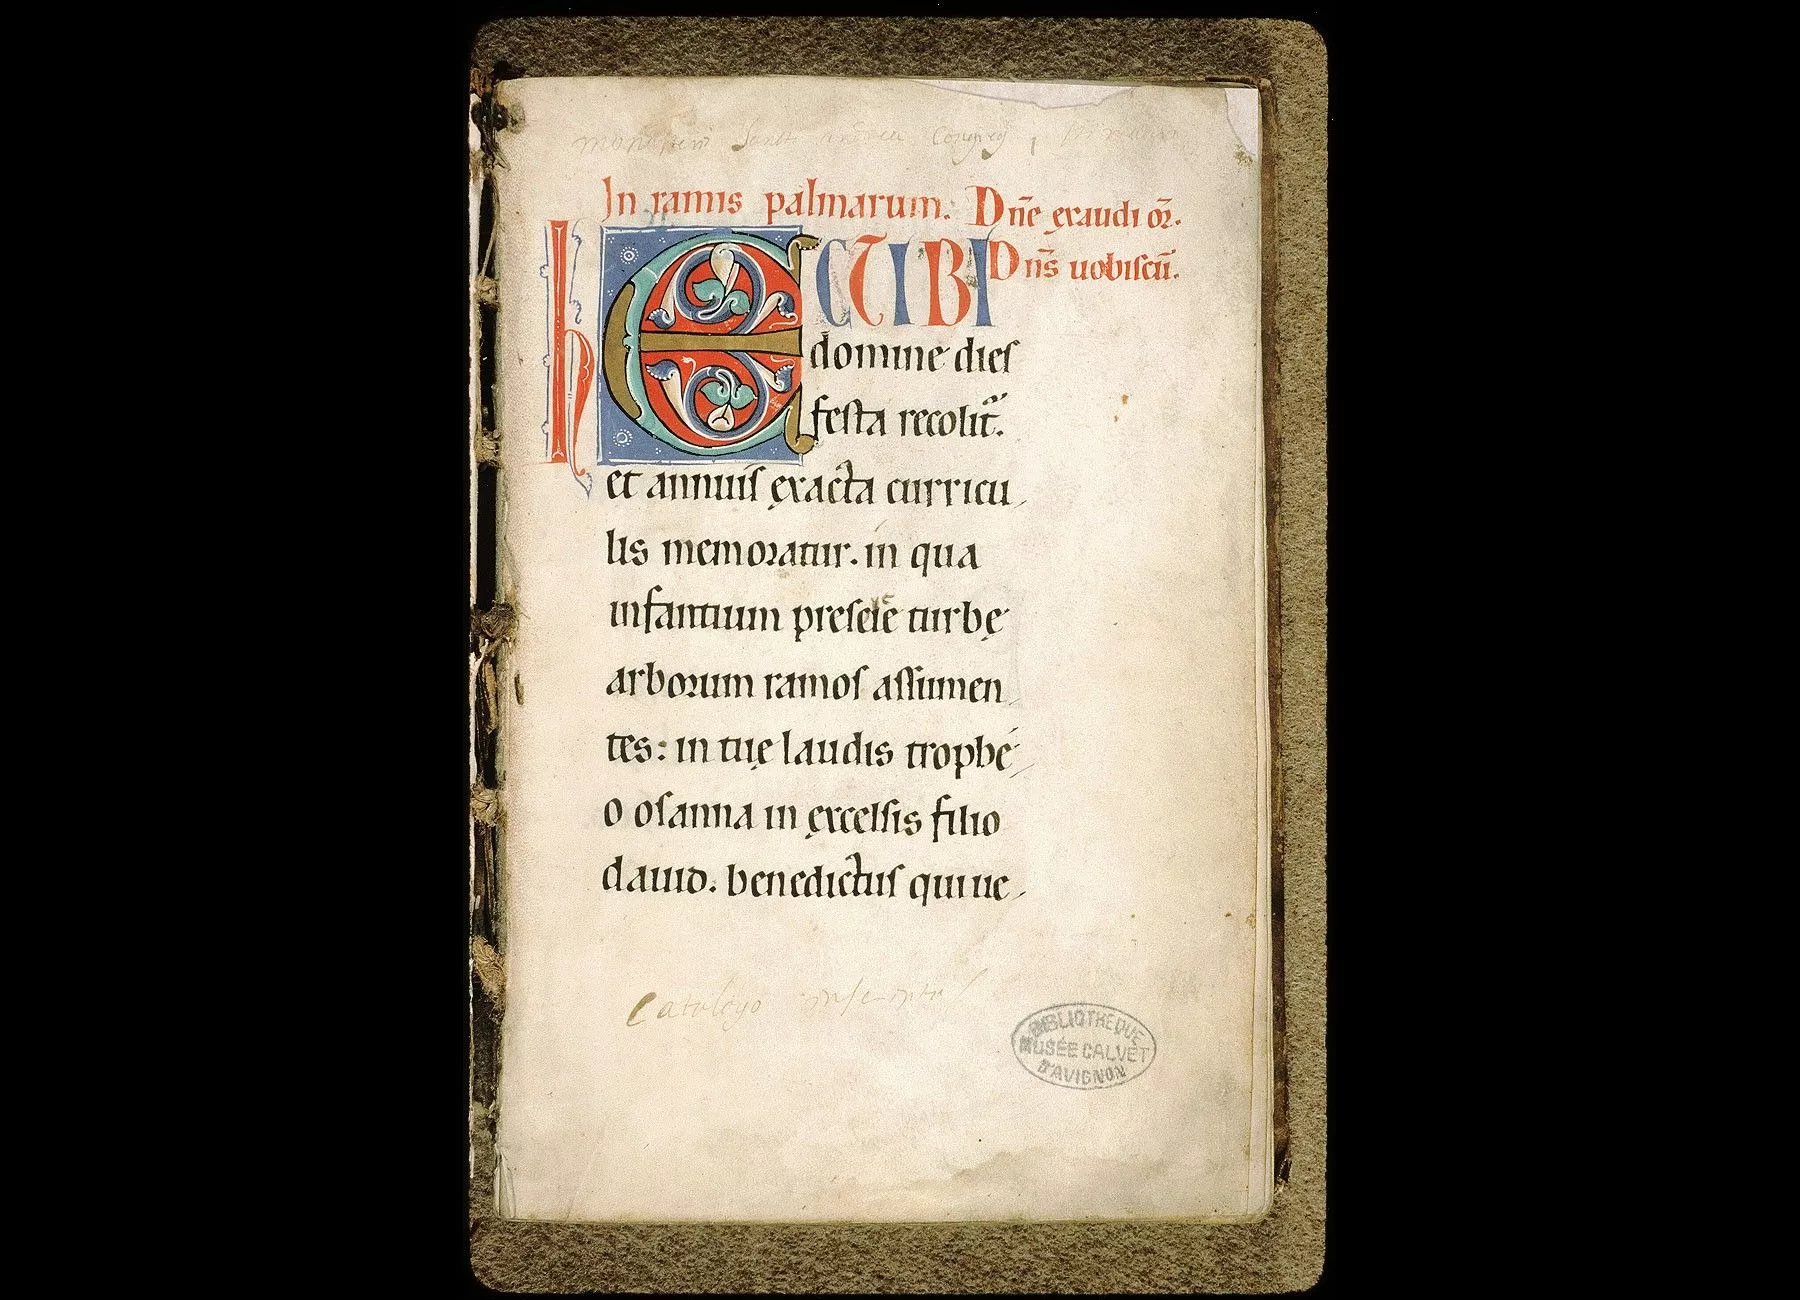 Sancti andreæ Congreg
In ramis palmarum. Dn̄e exaudi or̄.
hEC TIBI Dn̄s uobiſcū.
domine dieſ
feſta recolit᷑.
et annuiſ ęxacta curricu
lis memoratur. in qua
infantium turbę
arborum ramoſ aſſumen
tes: in tuę laudis trophé
o oſanna in ęxcelſis filio
dauid. benedictuſ qui ue
Catalogo inscriptus
BIBLIOTHEQUE
MUSÉE CALVET
D'AVIGNON